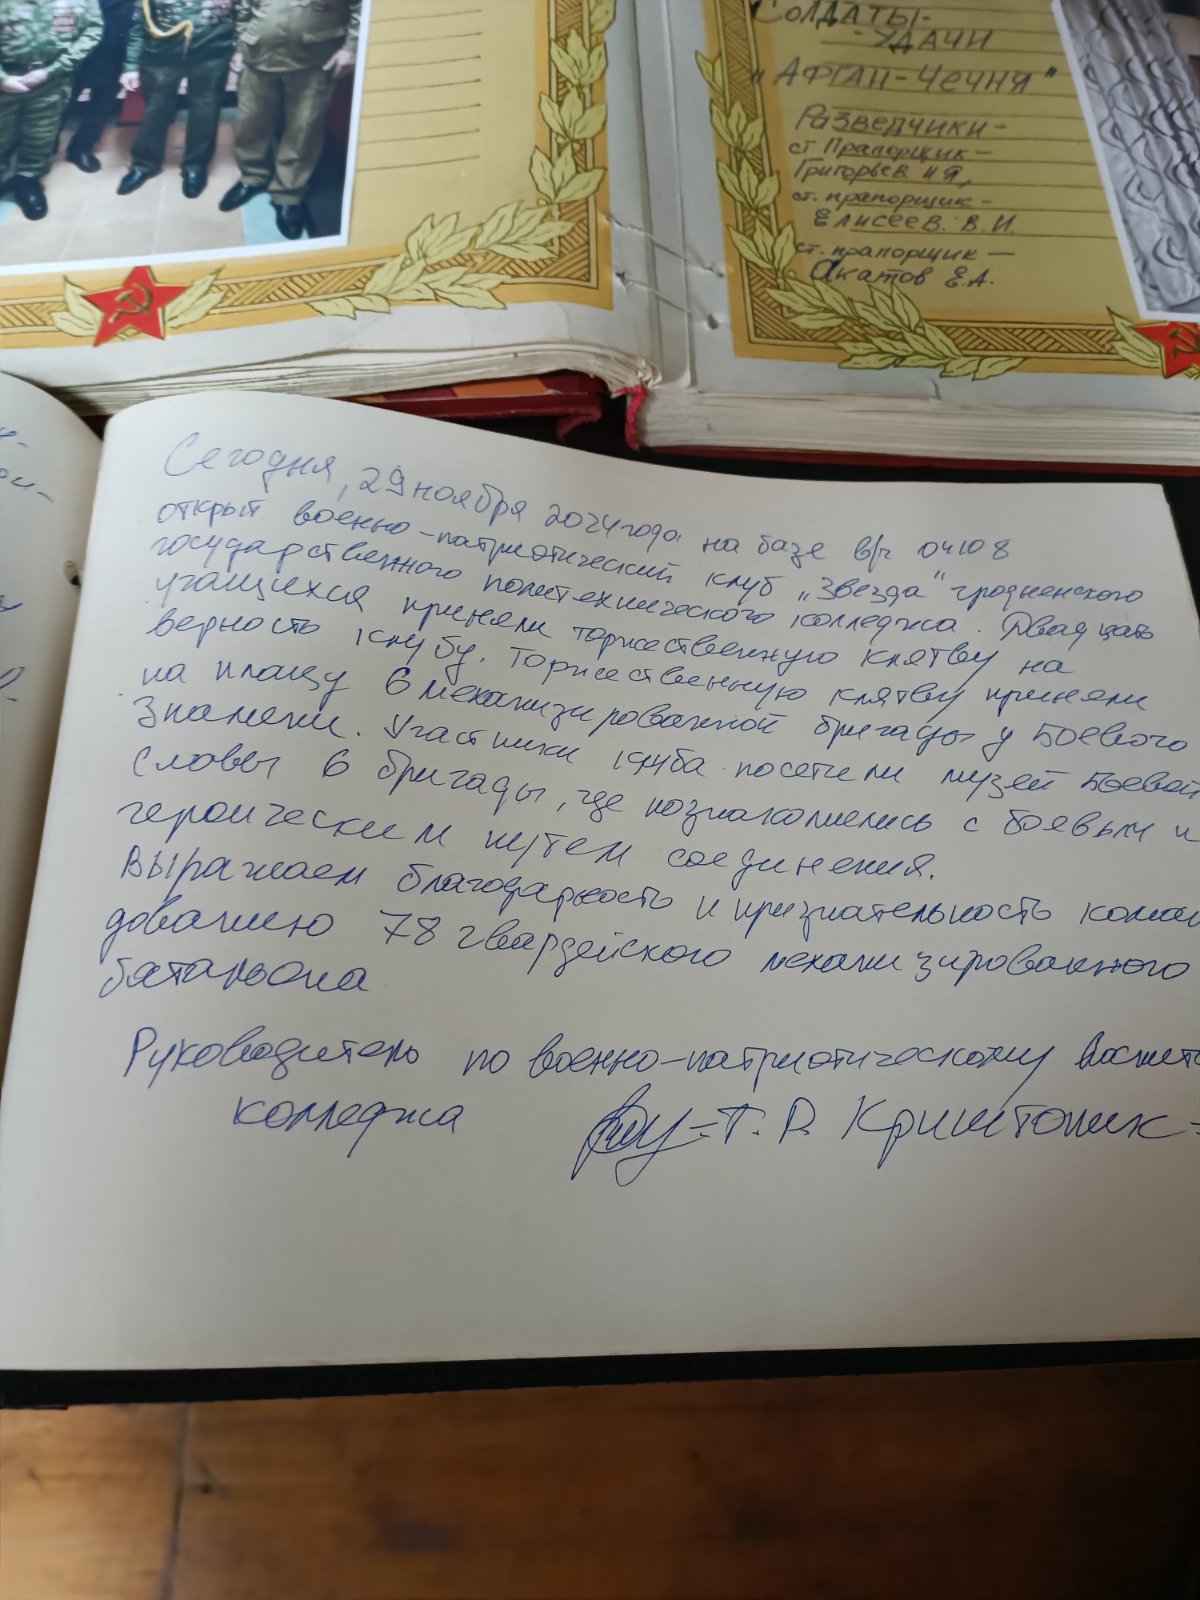 СОЛДАТЫ-
УДАЧИ
"АФГАН-ЧЕЧНЯ"
РАЗВЕДЧИКИ-
ст. Прапорщик-
Григорьев
ст. прапорщик-
Елисеев. В. И.
ст. прапорщик-
Акатов Е.А.
Сегодня, 29 ноября 2024 года на базе в/ч 04108
открыт военно-патриотический клуб „Звезда" гродненского
государственного политехнического колледжа. Двадцать
учащихся приняли торжественную клятву на
верность клубу. Торжественную клятву приняли
на плацу 6 механизированной бригады у Боевого
Знамени. Участники клуба посетили музей Боевой
Славы 6 бригады, где познакомились с боевым и
героическим путем соединения.
Выражаем благодарность и признательность коман
дованию 78 гвардейского механизированного
батальона
Руководитель по военно-патриотическому воспит
колледжа Т. В. Криштопик